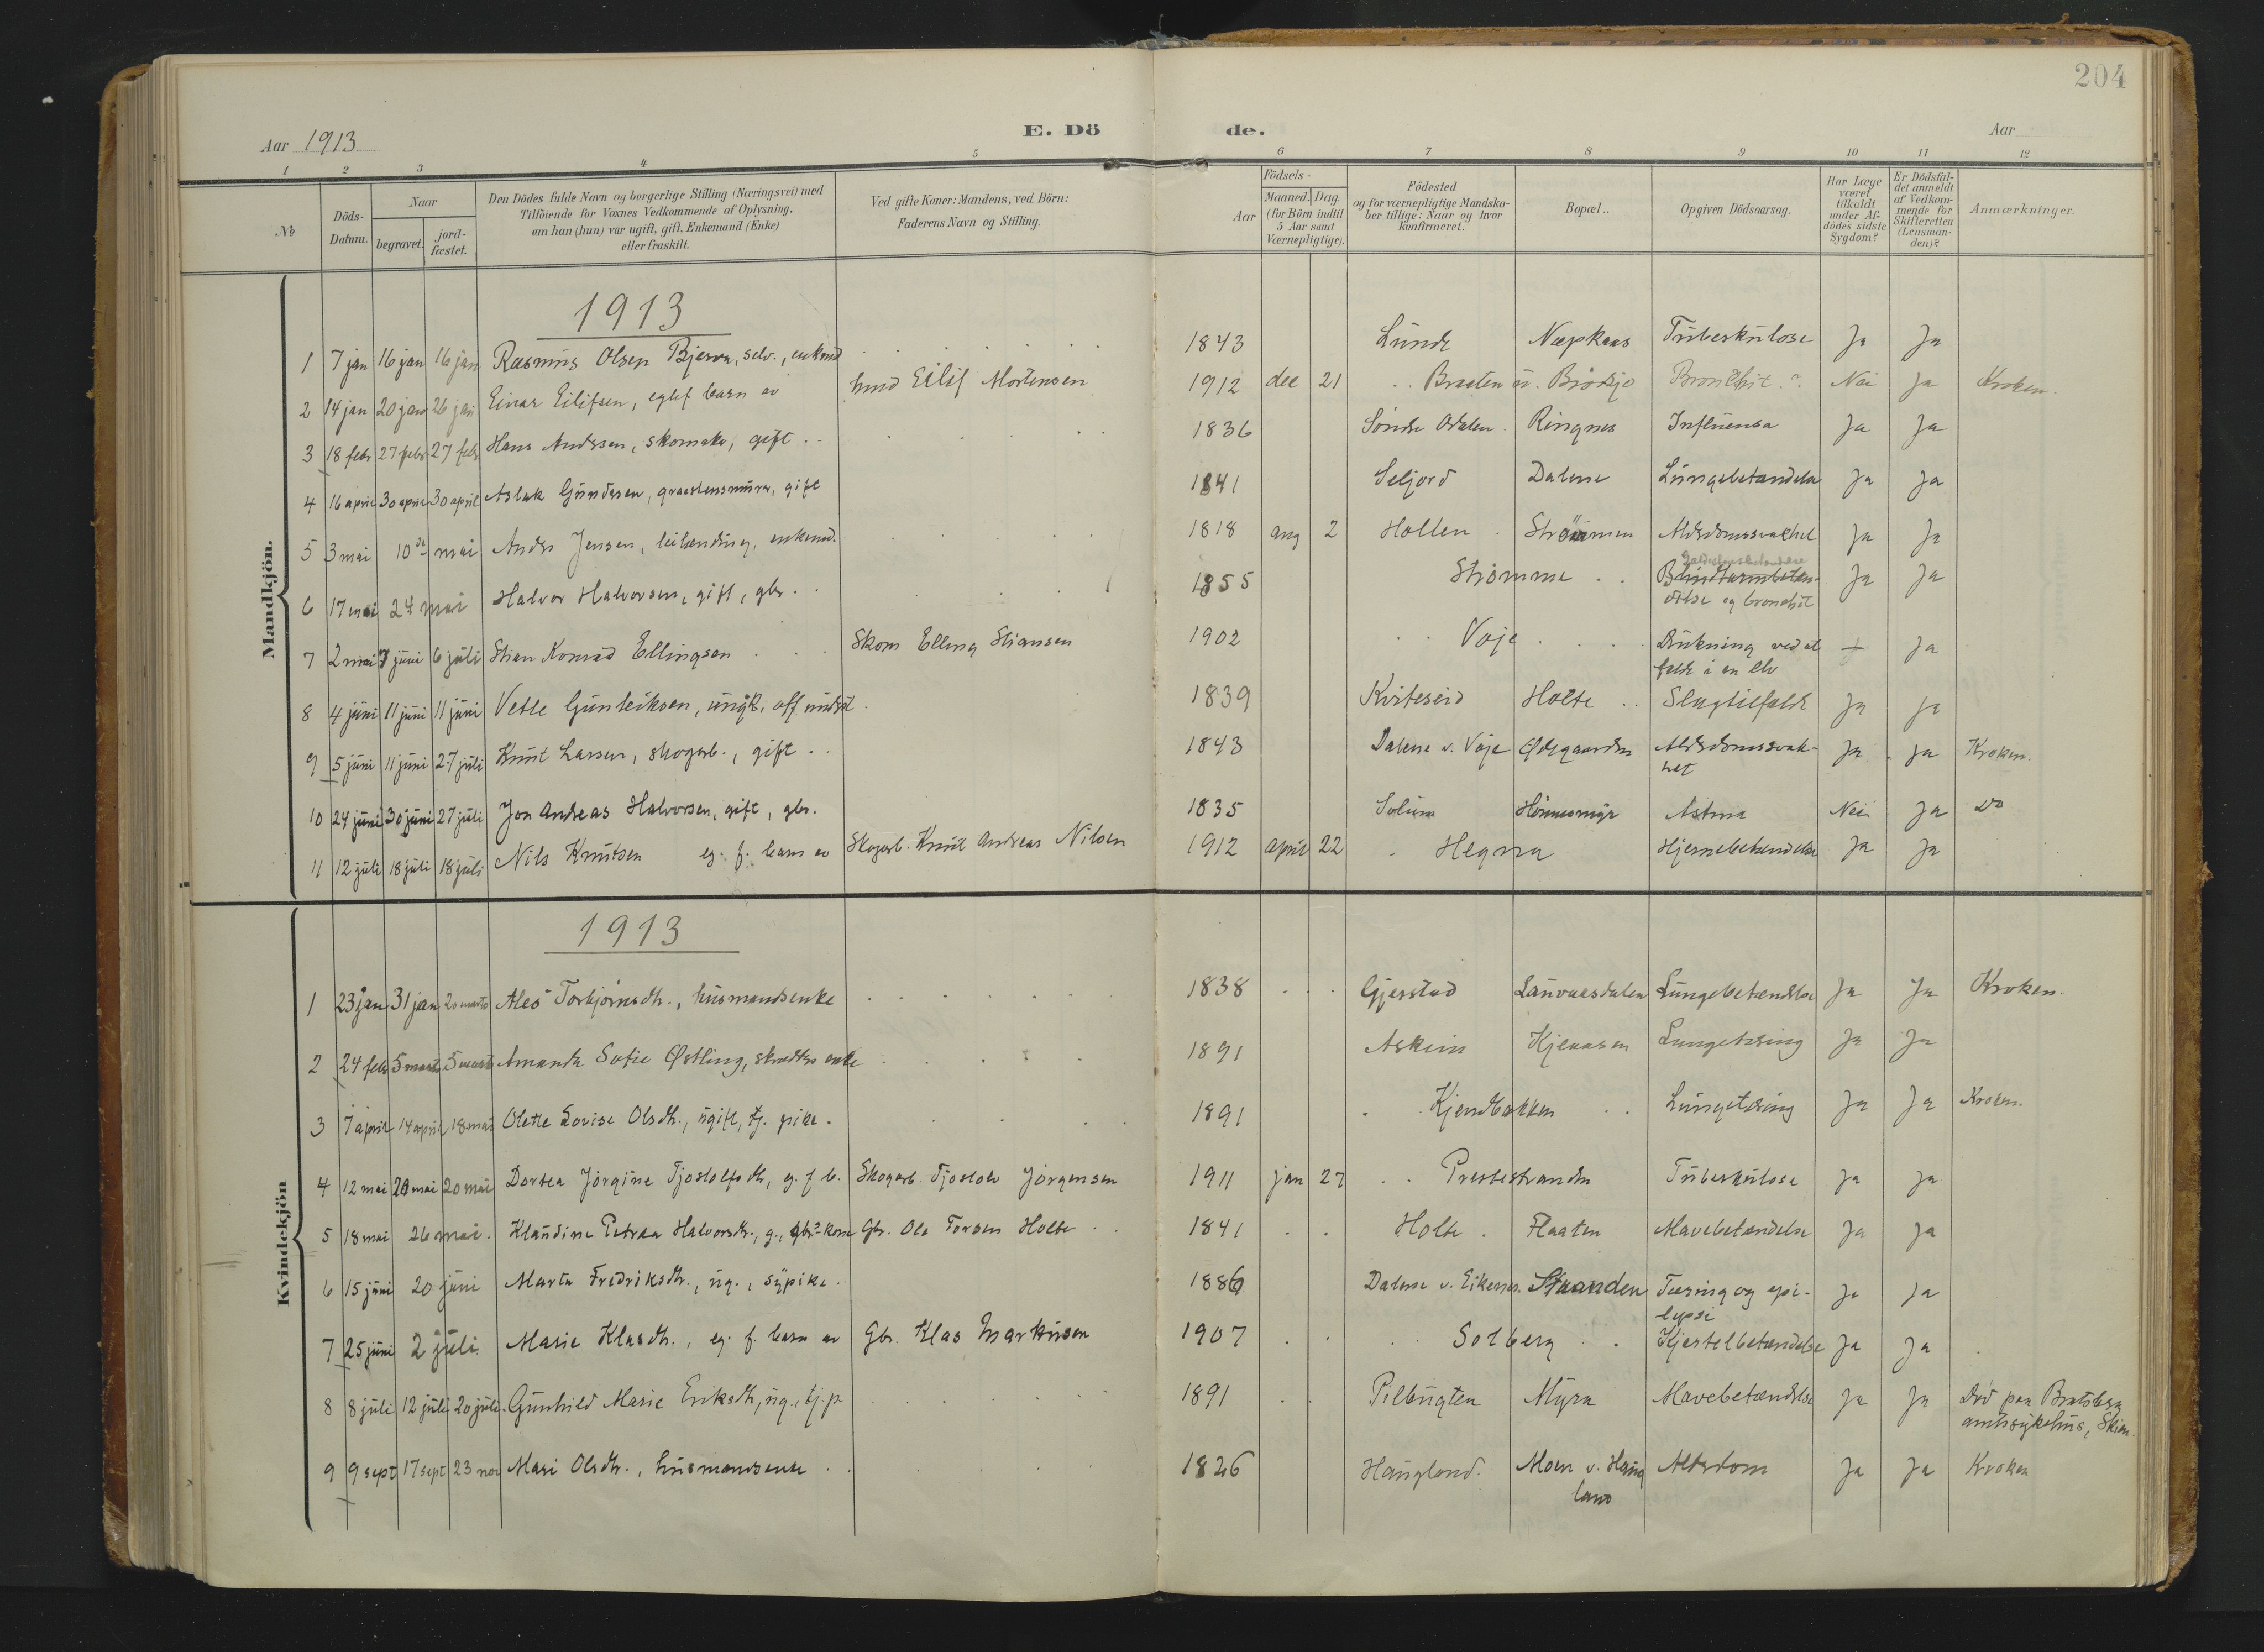 204
Aar 1913
E. Dö
de.
Aar
1 2 3 4 5 6 7 8 9 10 11 12
№
Döds-Datum.
Naar
begravet.
jord-fæstet.
Den Dödes fulde Navn og borgerlige Stilling (Næringsvei) med
Tilföiende for Voxnes Vedkommende af Oplysning,
om han (hun) var ugift, gift, Enkemand (Enke)
eller fraskilt.
Ved gifte Koner: Mandens, ved Börn:
Faderens Navn og Stilling.
Aar
Födsels-
Maaned. Dag.
(for Börn indtil
5 Aar samt
Værnepligtige).
Födested
og for værnepligtige Mandska-
ber tillige: Naar og hvor
konfirmeret.
Bopæl..
Opgiven Dödsaarsag.
Har Læge
været
tilkaldt
under Af-
dödes sidste
Sygdom?
Er Dödsfal-
det anmeldt
af Vedkom-
mende for
Skifteretten
(Lensman-
den)?
Anmærkninger.
Mandkjön.
1913
1 7 jan 16 jan 16 jan Rasmus Olsen Bjerva, selv., enkmd 1843 Lunde Næpkaas Tuberkulose Ja Ja
2 14 jan 20 jan 26 jan Einar Eilifsen, egtef barn av husmd Eilif Mortensen 1912 dec 21 Braaten u. Brödsjö Bronchit.? Nei Ja Kroken.
3 18 febr 27 febr 27 febr Hans Andersen, skomaker, gift 1836 Söndre Ringnes Influensa Ja Ja
4 16 april 30 april 30 april Aslak Gundersen, graastensmurer, gift 1841 Seljord Dalene Lungebetændelse Ja Ja
5 3 mai 10de mai Anders Jensen, leilænding, enkemd. 1818 aug 2 Holten Strömmen Alderdomssvakhet Ja Ja
6 17 mai 24 mai Halvor Halvorsen, gift, gbr. 1855 Strömme Blindtarmbetæn-
delse og bronchit Ja Ja
7 2 mai 7 juni 6 juli Stian Konrad Ellingsen Skom Elling Stiansen 1902 Voje Drukning ved at
falde i en elv + Ja
8 4 juni 11 juni 11 juni Vetle Gunleiksen, ungk., off. underst. 1839 Kviteseid Holte Slagtilfælde Ja Ja
9 5 juni 11 juni 27 juli Knut Larsen, skogarb., gift 1843 Dalene v. Voje Ödegaarden Alderdomssvak-
het Ja Ja Kroken.
10 24 juni 30 juni 27 juli Jon Andreas Halvorsen, gift, gbr. 1835 Solum Hönnesmyr Astma Nei Ja Do
11 12 juli 18 juli 18 juli Nils Knutsen eg. f. barn av Skogarb. Knut Andreas Nilsen 1912 april 22 Hegna Hjernebetændelse Ja Ja
Kvindekjön
1913
1 23 jan 31 jan 20 marts Ales Torbjörnsdtr., husmandsenke 1838 Gjerstad Lauvaasdalen Lungebetændelse Ja Ja Kroken.
2 24 febr 5 marts 5 marts Amanda Sofie Østling, skrædders enke 1891 Askim Kjenaasen Lungetæring Ja Ja
3 7 april 14 april 18 mai Olette Lovise Olsdtr., ugift, tj. pike. 1891 Kjendbakken Lungetæring Ja Ja Kroken.
4 12 mai 20 mai 20 mai Dortea Jörgine Tjostolfsdtr, eg. f. b. Skogarb. Tjostolv Jörgensen 1911 jan 27 Prestestranden Tuberkulose Ja Ja
5 18 mai 26 mai. Klaudine Petrea Halvorsdtr., g., gbrs kone Gbr. Ole Torsen Holte 1841 Holte Flaaten Mavebetændelse Ja Ja
6 15 juni 20 juni Marta Fredriksdtr., ug., sypike. 1886 Dalene v. Eikenes. Stranden Tæring og epi-
lepsi Ja Ja
7 25 juni 2 juli Marie Klasdtr., eg. f. barn av Gbr. Klas Markusen 1907 Solberg Kjertelbetændelse Ja Ja
8 8 juli 12 juli 20 juli Gunhild Marie Eriksdtr, ug., tj.p. 1891 Pilbugten Myra Mavebetændelse Ja Ja Död paa Bratsberg
amtssykehus, Skien.
9 9 sept 17 sept 23 nov Mari Olsdtr., husmandsenke 1826 Haugland. Moen v. Haug
land Alderdom Ja Ja Kroken